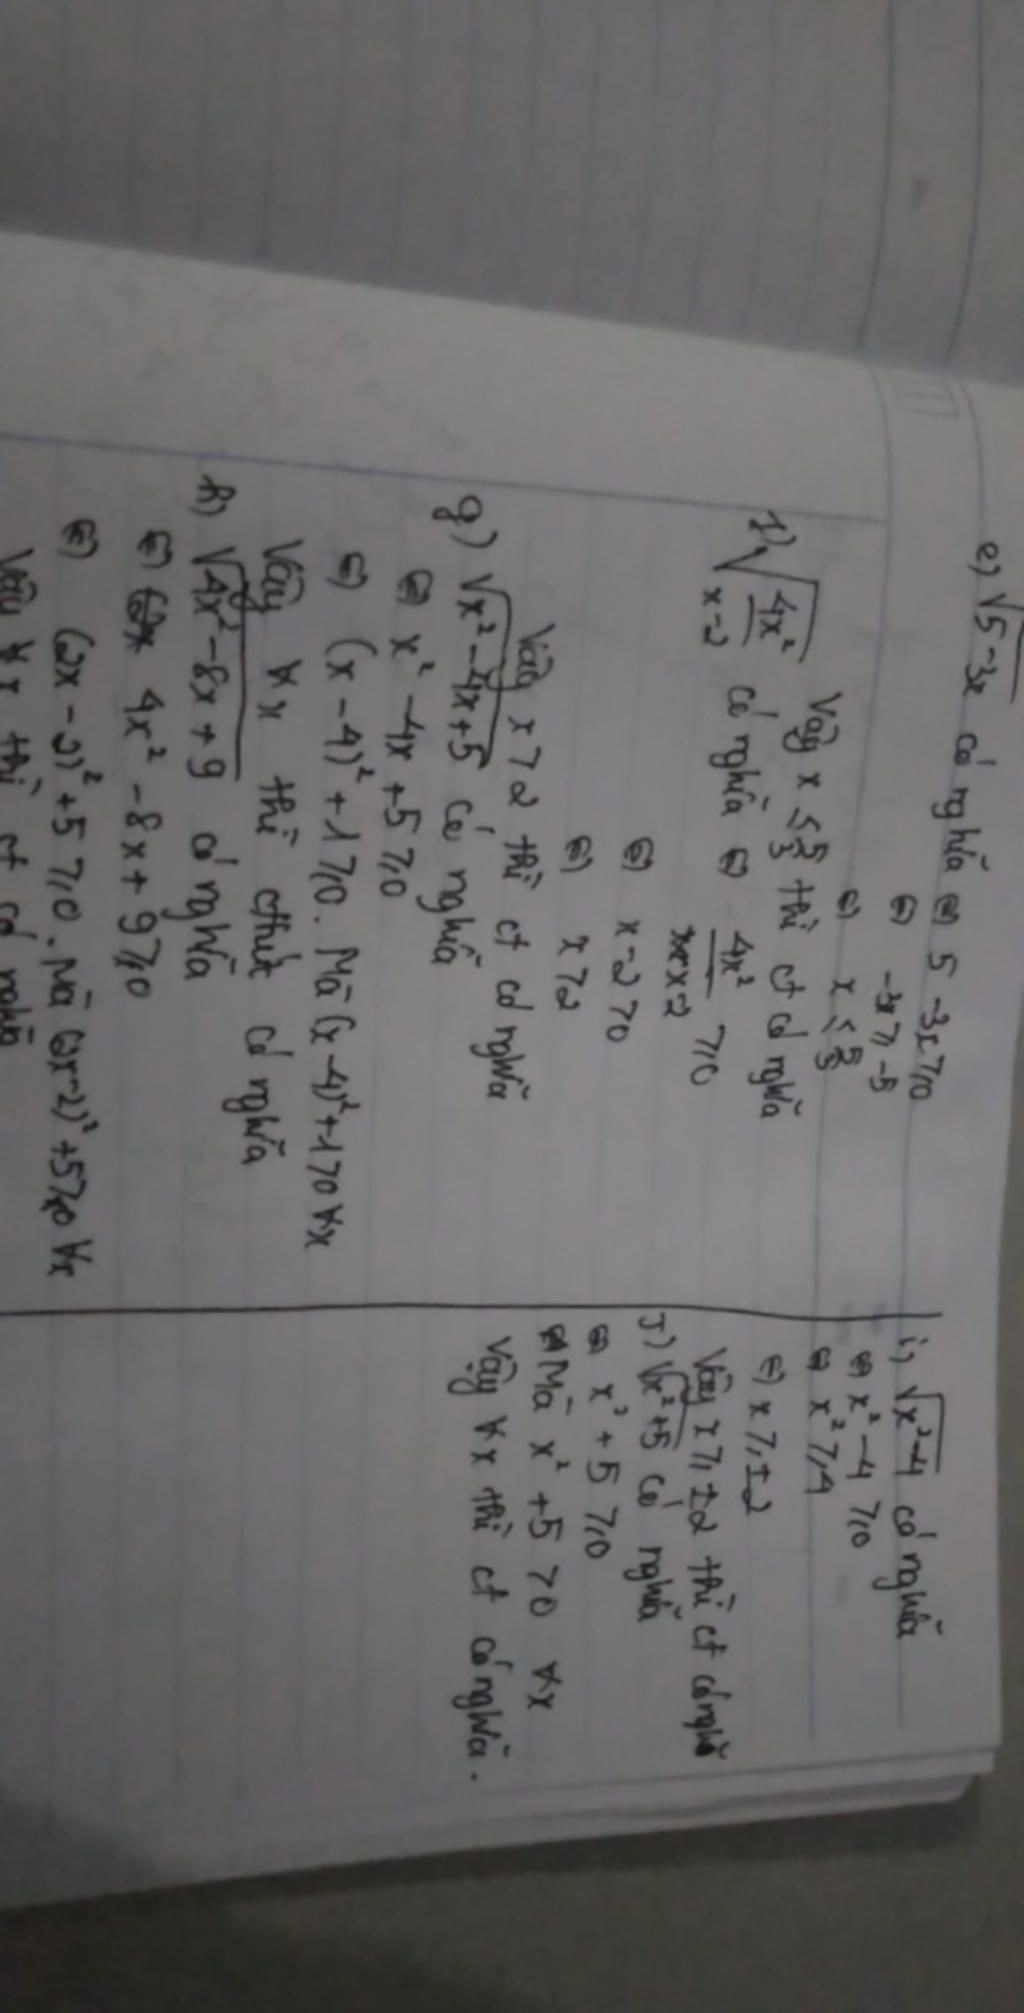 e) √5-3x có nghĩa ⇔ 5-3x ≥ 0
⇔ -3x ≥ -5
⇔ x ≤ 5/3
Vậy x ≤ 5/3 thì ct có nghĩa
f) √4x²/x-2 có nghĩa ⇔ 4x²/x-2 ≥ 0
⇔ x-2 > 0
⇔ x > 2
Vậy x > 2 thì ct có nghĩa
g) √x²-4x+5 có nghĩa
⇔ x²-4x+5 ≥ 0
⇔ (x-4)²+1 ≥ 0. Mà (x-4)²+1 > 0 ∀x
Vậy ∀x thì có nghĩa
h) √4x²-8x+9 có nghĩa
⇔ 4x²-8x+9 ≥ 0
⇔ (2x-2)²+5 ≥ 0. Mà (2x-2)²+5 > 0 ∀x
Vậy ∀x thì ct có nghĩa
i) √x²-4 có nghĩa
⇔ x²-4 ≥ 0
⇔ x² ≥ 4
⇔ x ≥ ±2
Vậy x ≥ ±2 thì ct có nghĩa
J) √x²+5 có nghĩa
⇔ x²+5 ≥ 0
Mà x²+5 > 0 ∀x
Vậy ∀x thì ct có nghĩa.